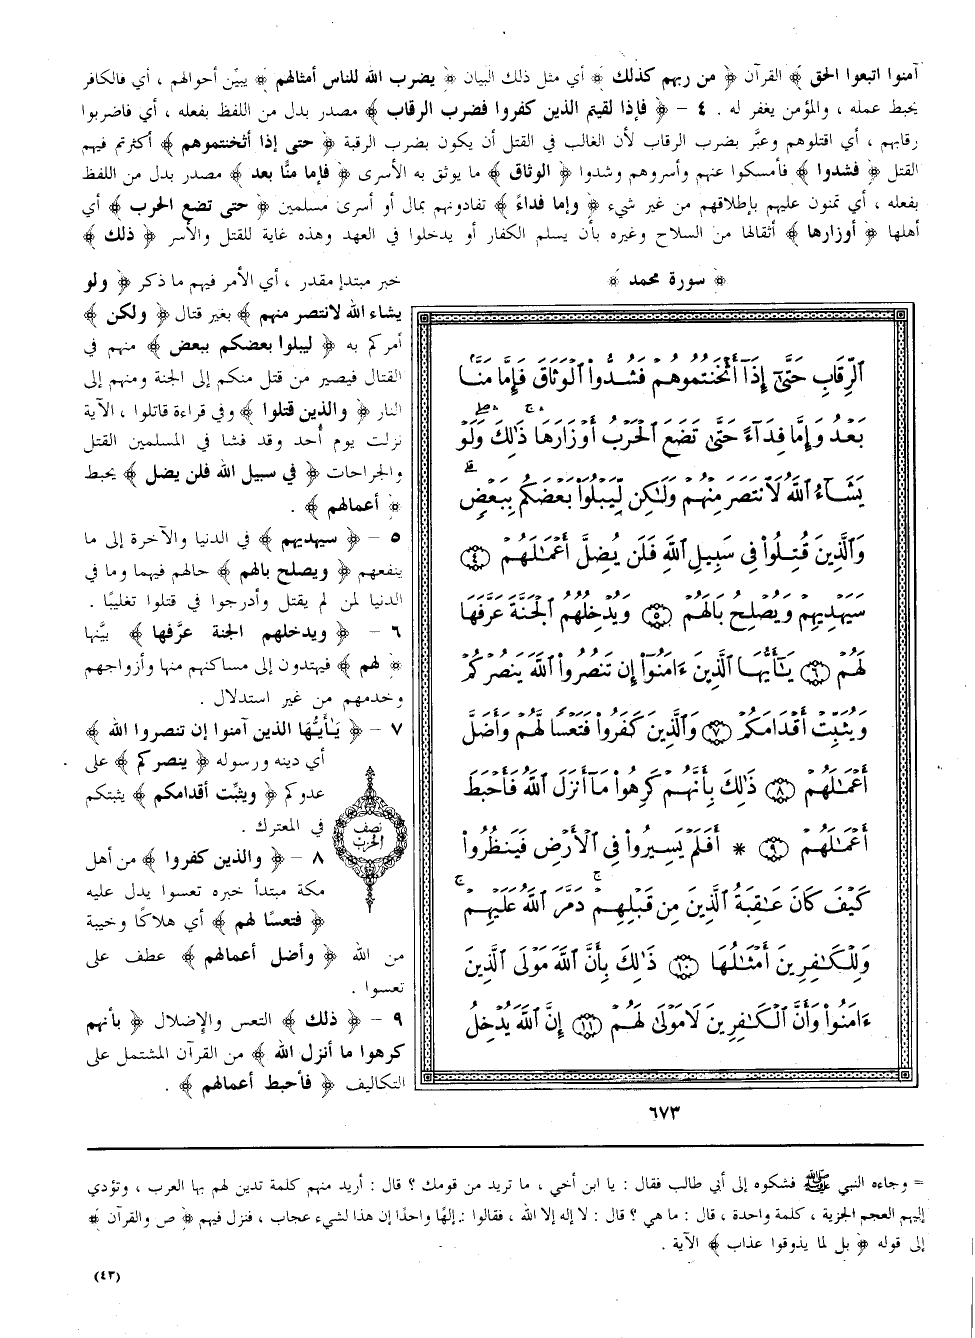 آمنوا اتبعوا الحق ﴾ القرآن ﴿ من ربهم كذلك ﴾ أي مثل ذلك البيان ﴿ يضرب الله للناس أمثالهم ﴾ يبيّن أحوالهم ، أي فالكافر
يحبط عمله ، والمؤمن يغفر له . ٤ - ﴿ فإذا لقيتم الذين كفروا فضرب الرقاب ﴾ مصدر بدل من اللفظ بفعله ، أي فاضربوا
رقابهم ، أي اقتلوهم وعبَّر بضرب الرقاب لأن الغالب في القتل أن يكون بضرب الرقبة ﴿ حتى إذا أثخنتموهم ﴾ أكثرتم فيهم
القتل ﴿ فشدوا ﴾ فأمسكوا عنهم وأسروهم وشدوا ﴿ الوثاق ﴾ ما يوثق به الأسرى ﴿ فإما منًّا بعد ﴾ مصدر بدل من اللفظ
بفعله ، أي تمنون عليهم بإطلاقهم من غير شيء ﴿ وإما فداءً ﴾ تفادونهم بمال أو أسرى مسلمين ﴿ حتى تضع الحرب ﴾ أي
أهلها ﴿ أوزارها ﴾ أثقالها من السلاح وغيره بأن يسلم الكفار أو يدخلوا في العهد وهذه غاية للقتل والأسر ﴿ ذلك ﴾
﴿ سورة محمد ﴾
ٱلرِّقَابِ حَتَّىٰٓ إِذَآ أَثْخَنتُمُوهُمْ فَشُدُّوا۟ ٱلْوَثَاقَ فَإِمَّا مَنًّۢا
بَعْدُ وَإِمَّا فِدَآءً حَتَّىٰ تَضَعَ ٱلْحَرْبُ أَوْزَارَهَا ۚ ذَٰلِكَ ۖ وَلَوْ
يَشَآءُ ٱللَّهُ لَٱنتَصَرَ مِنْهُمْ وَلَٰكِن لِّيَبْلُوَا۟ بَعْضَكُم بِبَعْضٍ ۗ
وَٱلَّذِينَ قُتِلُوا۟ فِى سَبِيلِ ٱللَّهِ فَلَن يُضِلَّ أَعْمَٰلَهُمْ ٤
سَيَهْدِيهِمْ وَيُصْلِحُ بَالَهُمْ ٥ وَيُدْخِلُهُمُ ٱلْجَنَّةَ عَرَّفَهَا
لَهُمْ ٦ يَٰٓأَيُّهَا ٱلَّذِينَ ءَامَنُوٓا۟ إِن تَنصُرُوا۟ ٱللَّهَ يَنصُرْكُمْ
وَيُثَبِّتْ أَقْدَامَكُمْ ٧ وَٱلَّذِينَ كَفَرُوا۟ فَتَعْسًا لَّهُمْ وَأَضَلَّ
أَعْمَٰلَهُمْ ٨ ذَٰلِكَ بِأَنَّهُمْ كَرِهُوا۟ مَآ أَنزَلَ ٱللَّهُ فَأَحْبَطَ
أَعْمَٰلَهُمْ ٩ * أَفَلَمْ يَسِيرُوا۟ فِى ٱلْأَرْضِ فَيَنظُرُوا۟
كَيْفَ كَانَ عَٰقِبَةُ ٱلَّذِينَ مِن قَبْلِهِمْ ۚ دَمَّرَ ٱللَّهُ عَلَيْهِمْ ۖ
وَلِلْكَٰفِرِينَ أَمْثَٰلُهَا ١٠ ذَٰلِكَ بِأَنَّ ٱللَّهَ مَوْلَى ٱلَّذِينَ
ءَامَنُوا۟ وَأَنَّ ٱلْكَٰفِرِينَ لَا مَوْلَىٰ لَهُمْ ١١ إِنَّ ٱللَّهَ يُدْخِلُ
خبر مبتدإ مقدر ، أي الأمر فيهم ما ذكر ﴿ ولو
يشاء الله لانتصر منهم ﴾ بغير قتال ﴿ ولكن ﴾
أمركم به ﴿ ليبلوا بعضكم ببعض ﴾ منهم في
القتال فيصير من قتل منكم إلى الجنة ومنهم إلى
النار ﴿ والذين قتلوا ﴾ وفي قراءة قاتلوا ، الآية
نزلت يوم أُحد وقد فشا في المسلمين القتل
والجراحات ﴿ في سبيل الله فلن يضل ﴾ يحبط
﴿ أعمالهم ﴾ .
٥ - ﴿ سيهديهم ﴾ في الدنيا والآخرة إلى ما
ينفعهم ﴿ ويصلح بالهم ﴾ حالهم فيهما وما في
الدنيا لمن لم يقتل وأدرجوا في قتلوا تغليبًا .
٦ - ﴿ ويدخلهم الجنة عرَّفها ﴾ بيَّنها
﴿ لهم ﴾ فيهتدون إلى مساكنهم منها وأزواجهم
وخدمهم من غير استدلال .
٧ - ﴿ يَٰأيُّها الذين آمنوا إن تنصروا الله ﴾
أي دينه ورسوله ﴿ ينصركم ﴾ على
عدوكم ﴿ ويثبِّت أقدامكم ﴾ يثبتكم
في المعترك .
نصف
الحزب
٨ - ﴿ والذين كفروا ﴾ من أهل
مكة مبتدأ خبره تعسوا يدل عليه
﴿ فتعسًا لهم ﴾ أي هلاكًا وخيبة
من الله ﴿ وأضل أعمالهم ﴾ عطف على
تعسوا .
٩ - ﴿ ذلك ﴾ التعس والإضلال ﴿ بأنهم
كرهوا ما أنزل الله ﴾ من القرآن المشتمل على
التكاليف ﴿ فأحبط أعمالهم ﴾ .
٦٧٣
= وجاءه النبي ﷺ فشكوه إلى أبي طالب فقال : يا ابن أخي ، ما تريد من قومك ؟ قال : أريد منهم كلمة تدين لهم بها العرب ، وتؤدي
إليهم العجم الجزية ، كلمة واحدة ، قال : ما هي ؟ قال : لا إله إلا الله ، فقالوا : إلهًا واحدًا إن هذا لشيء عجاب ، فنزل فيهم ﴿ ص والقرآن ﴾
إلى قوله ﴿ بل لما يذوقوا عذاب ﴾ الآية .
(٤٣)